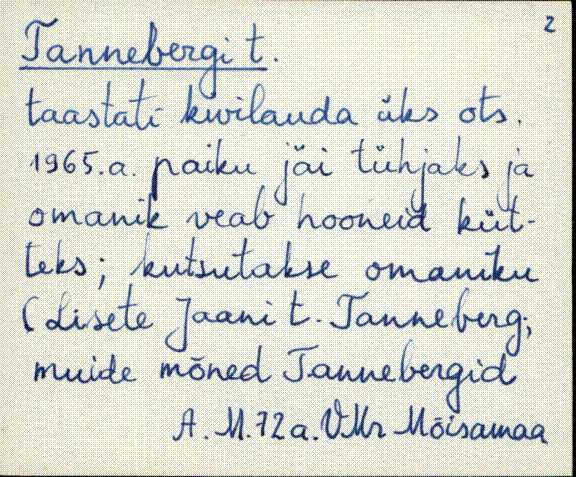 2
Tannebergi t.
taastati kivilauda üks ots.
1965.a. paiku jäi tühjaks ja
omanik veab hooneid küt-
teks; kutsutakse omaniku
(Lisete Jaani t. Tanneberg;
muide mõned Tannebergid
A. M. 72 a. VMr Mõisamaa